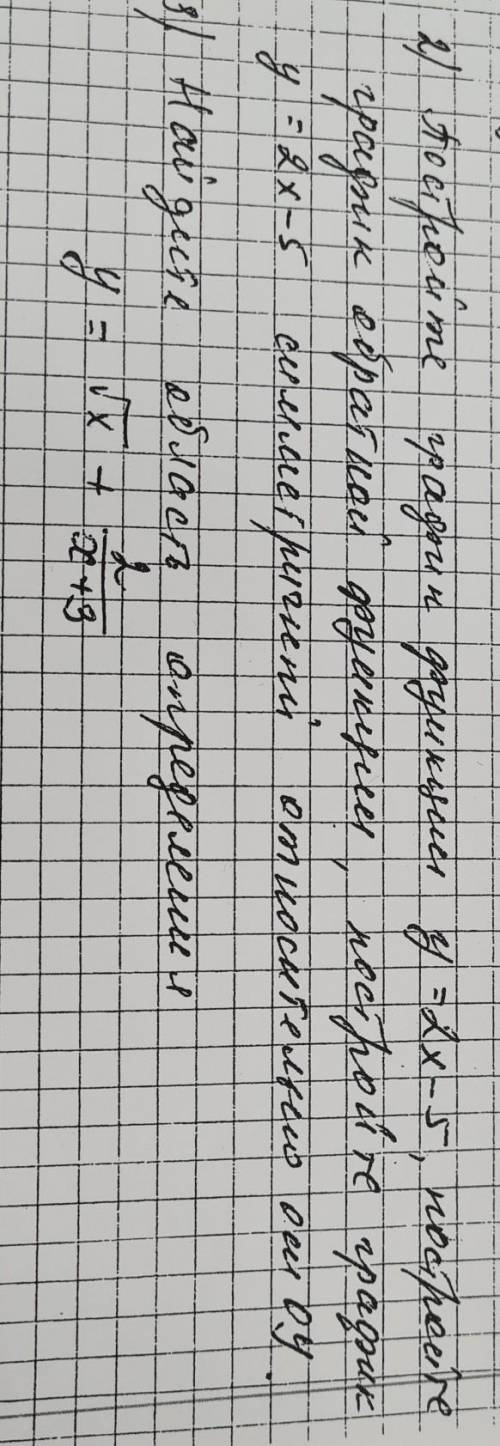 2) Постройте график функции y = 2x - 5, постройте
график обратной функции, постройте график
y = 2x - 5 симметричный относительно оси OY.
3) Найдите область определения
y = √x + 2/(x+9)